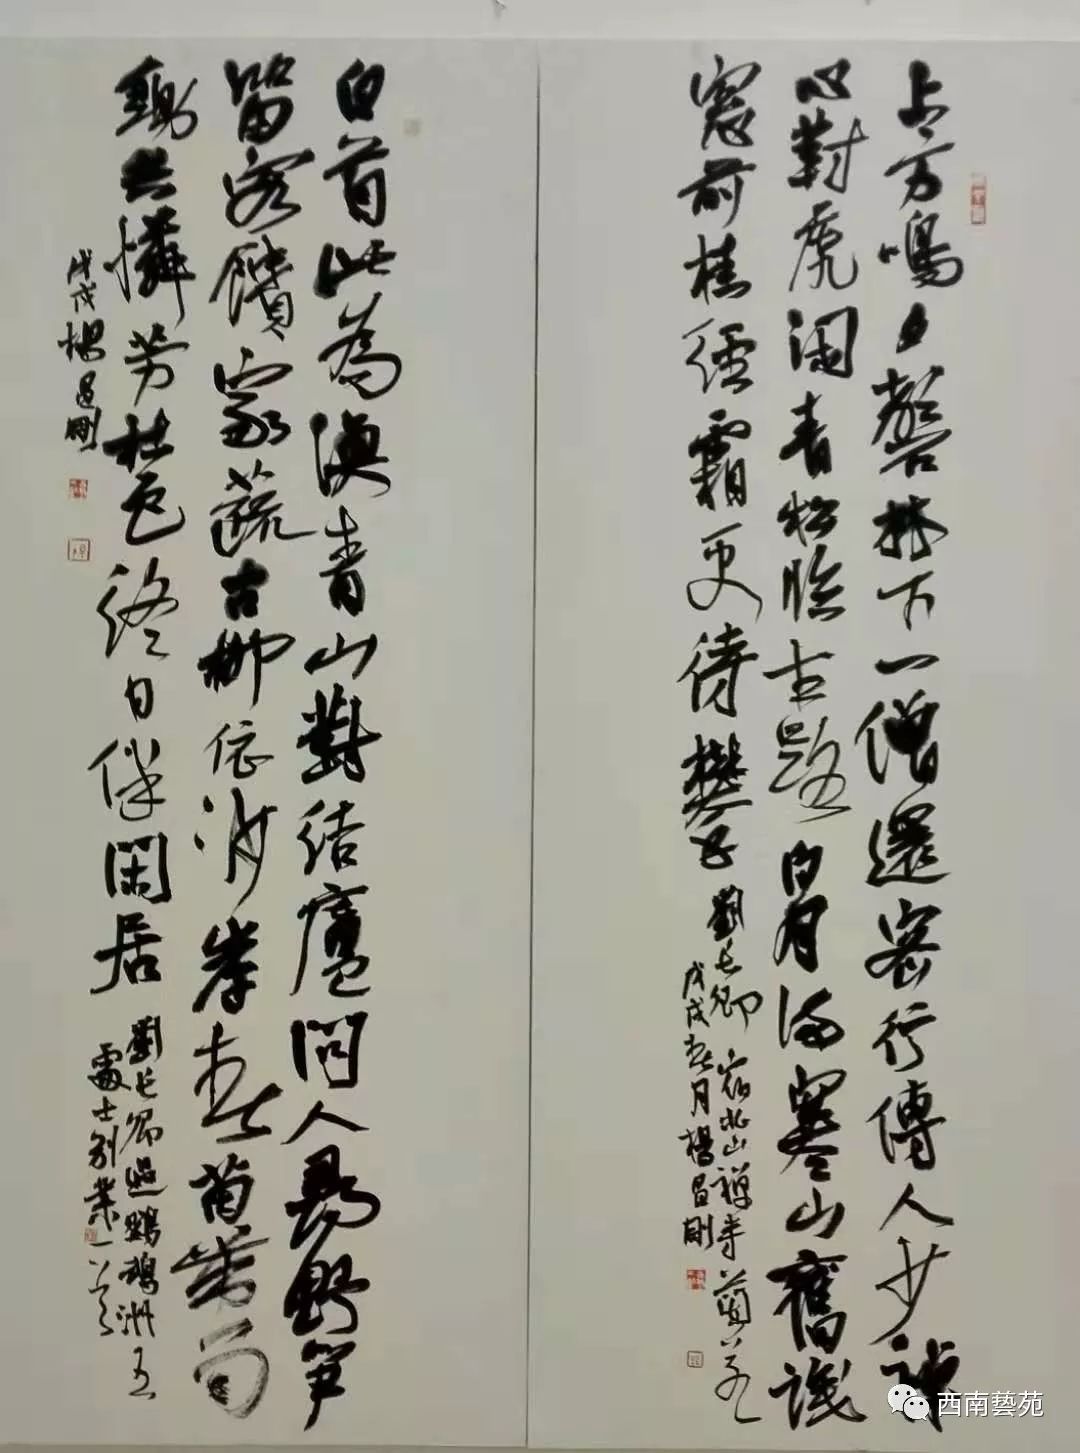 上方鳴夕磬林下一僧還密行傳人少禅
心對虎閑青松臨古路白月滿寒山舊識
窓前桂經霜更待攀劉長卿宿北山禪寺蘭若
戊戌春月楊昌剛
白首此為漁青山對結廬問人尋野笋
留客饋家蔬古柳依沙發春苗帶雨
鋤共憐芳杜色終日伴閑居劉長卿過鸚鵡洲王
處士别業一首
戊戌楊昌剛
西南藝苑